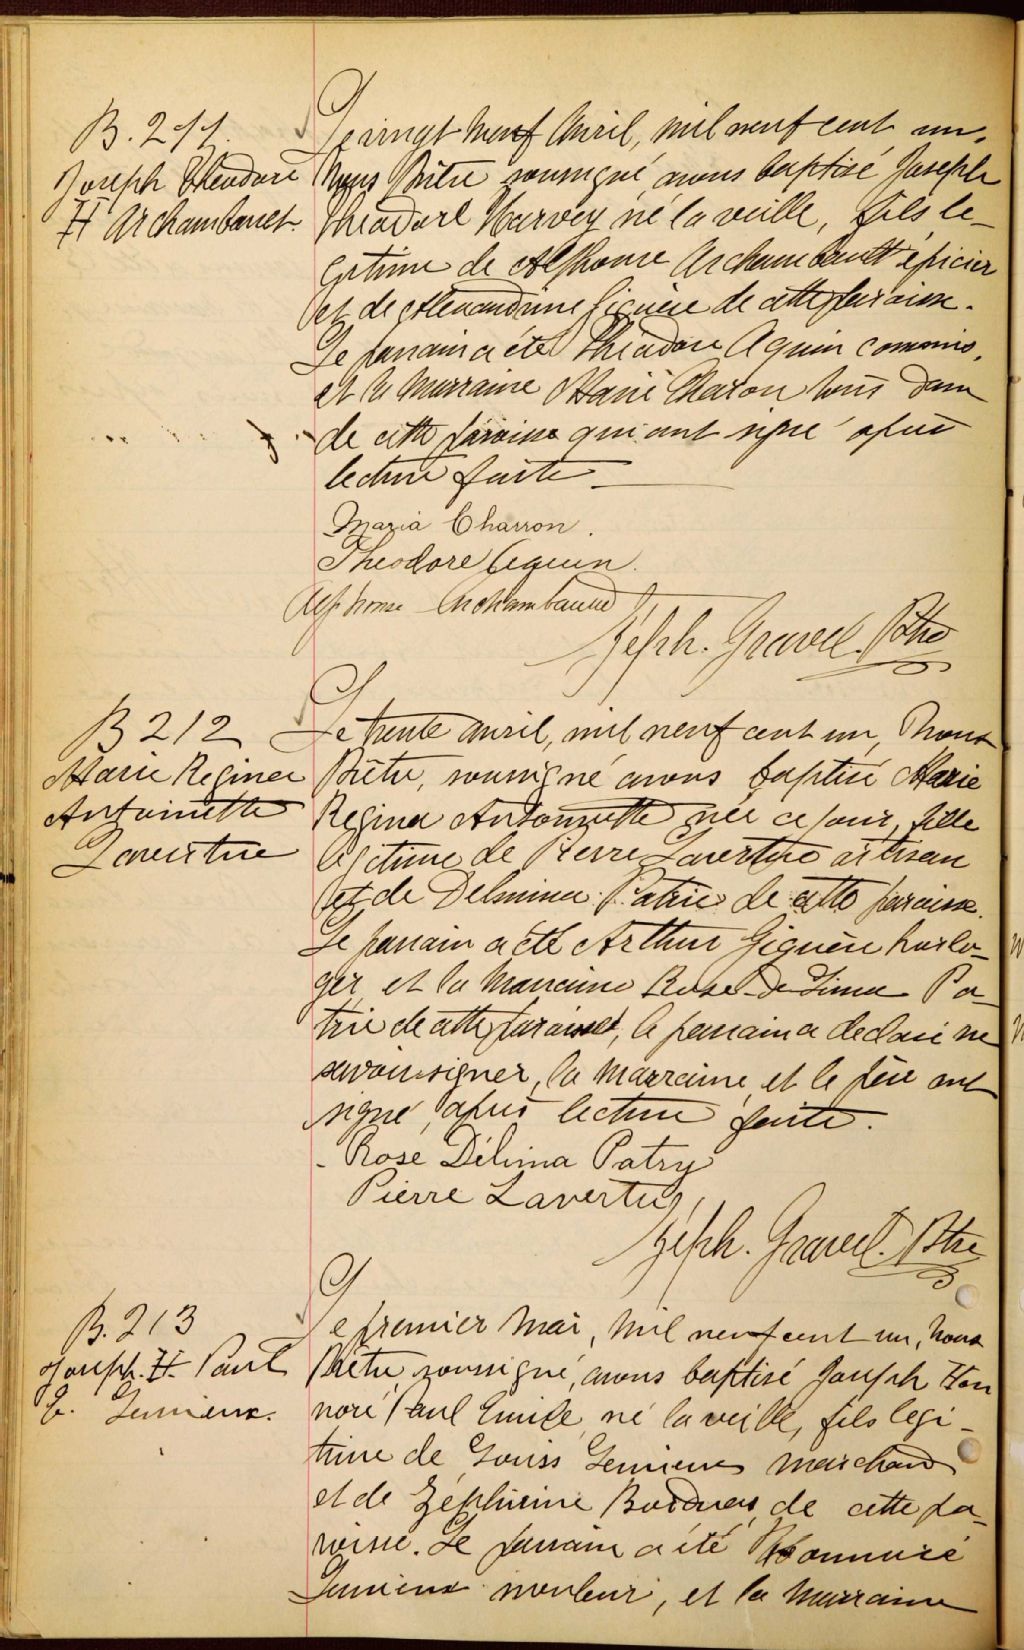 B. 211.
Joseph Theodore
H Archambault
Le vingt neuf Avril, mil neuf cent un,
Nous Prêtre soussigné avons baptisé Joseph
Théodore Harvey né la veille, fils le-
gitime de Alphonse Archambault épicier
et de Alexandrine Giguère de cette paroisse.
Le parrain a été Théodore Aquin commis,
et la Marraine Marie Charon tous deux
de cette paroisse qui ont signé après
lecture faite.
Maria Charron.
Theodore Aquin.
Alphonse Archambault
Zéph. Gravel. Ptre
B 212
Marie Regina
Antoinette
Lavertue
Le trente avril, mil neuf cent un, Nous
Prêtre, soussigné avons baptisé Marie
Regina Antoinette née ce jour, fille
legitime de Pierre Lavertue artisan
et de Delmina Patrie de cette paroisse.
Le parrain a été Arthur Giguère horlo-
ger et la Marraine Rose-de-Lima Pa-
trie de cette paroisse, le parrain a declaré ne
savoir signer, la marraine et le père ont
signé, après lecture faite.
Rose Délima Patry
Pierre Lavertu
Zéph. Gravel. Ptre
B. 213
Joseph. H. Paul
E. Lemieux.
Le premier Mai, Mil neuf cent un, Nous
Prêtre soussigné, avons baptisé Joseph Hon
noré Paul Emile né la veille, fils legi-
time de Louis Lemieux marchand
et de Zéphirine de cette pa-
roisse. Le parrain a été Honnoré
Lemieux mouleur, et la Marraine